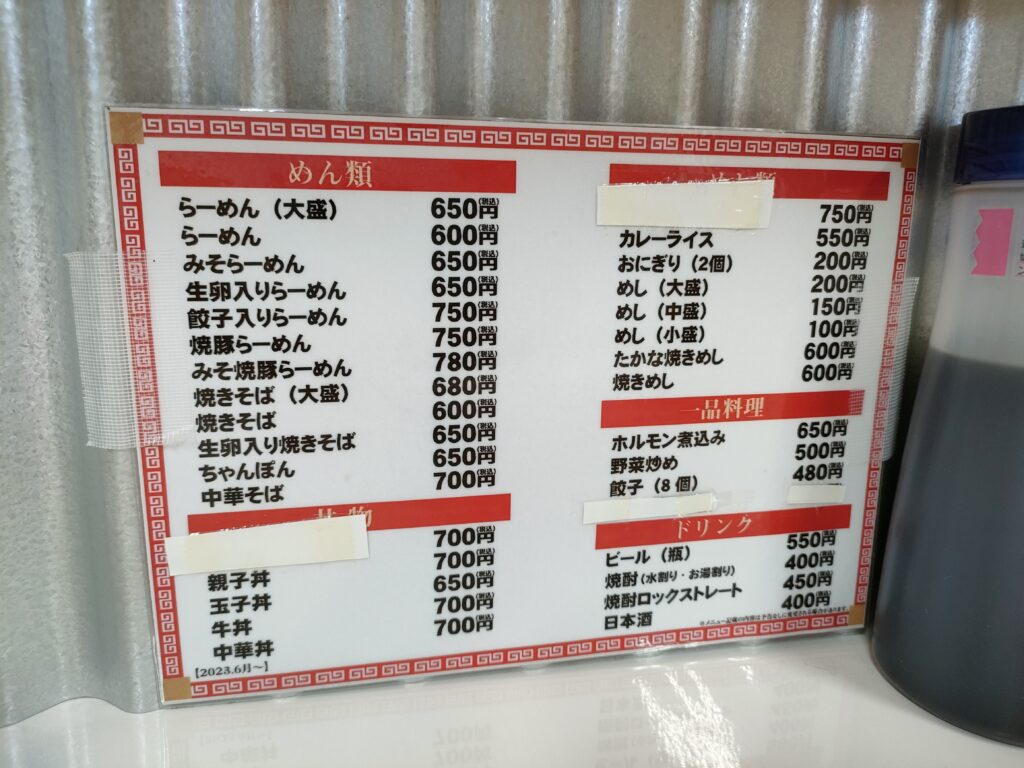 めん類
らーめん（大盛） 650円(税込)
らーめん 600円(税込)
みそらーめん 650円(税込)
生卵入りらーめん 650円(税込)
餃子入りらーめん 750円(税込)
焼豚らーめん 750円(税込)
みそ焼豚らーめん 780円(税込)
焼きそば（大盛） 680円(税込)
焼きそば 600円(税込)
生卵入り焼きそば 650円(税込)
ちゃんぽん 650円(税込)
中華そば 700円(税込)
丼物
700円(税込)
親子丼 700円(税込)
玉子丼 650円(税込)
牛丼 700円(税込)
中華丼 700円(税込)
【2023.6月～】
めし類
750円(税込)
カレーライス 550円(税込)
おにぎり（2個） 200円(税込)
めし（大盛） 200円(税込)
めし（中盛） 150円(税込)
めし（小盛） 100円(税込)
たかな焼きめし 600円(税込)
焼きめし 600円(税込)
一品料理
ホルモン煮込み 650円(税込)
野菜炒め 500円(税込)
餃子（8個） 480円(税込)
ドリンク
ビール（瓶） 550円(税込)
焼酎（水割り・お湯割り） 400円(税込)
焼酎ロックストレート 450円(税込)
日本酒 400円(税込)
※メニュー記載の内容は予告なしに変更される場合があります。